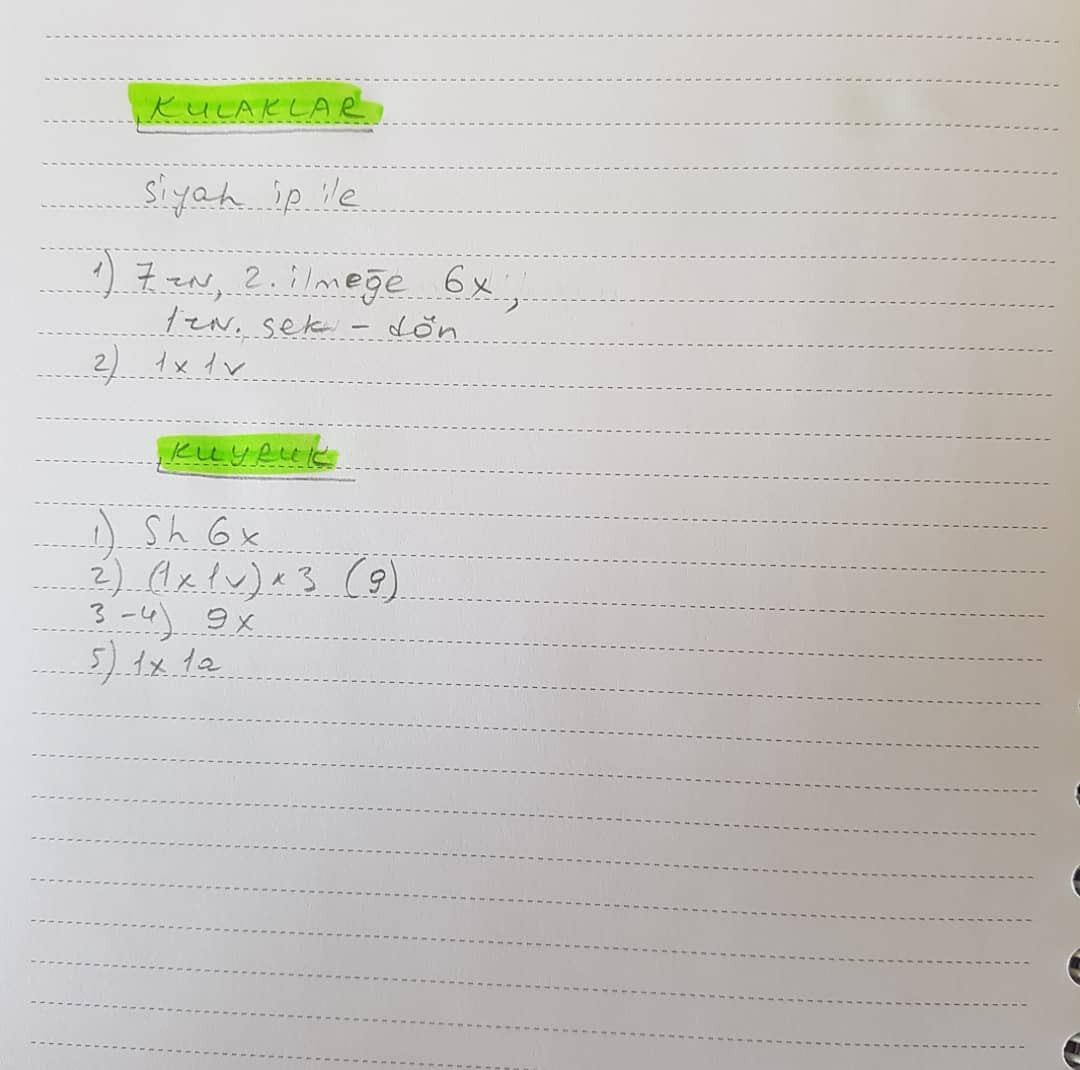 KULAKLAR
Siyah ip ile
1) 7 zN, 2. ilmeğe 6x,
1zN. sek - dön
2) 1x 1v
KUYRUK
1) Sh 6x
2) (1x 1v) x 3 (9)
3-4) 9x
5) 1x 1a